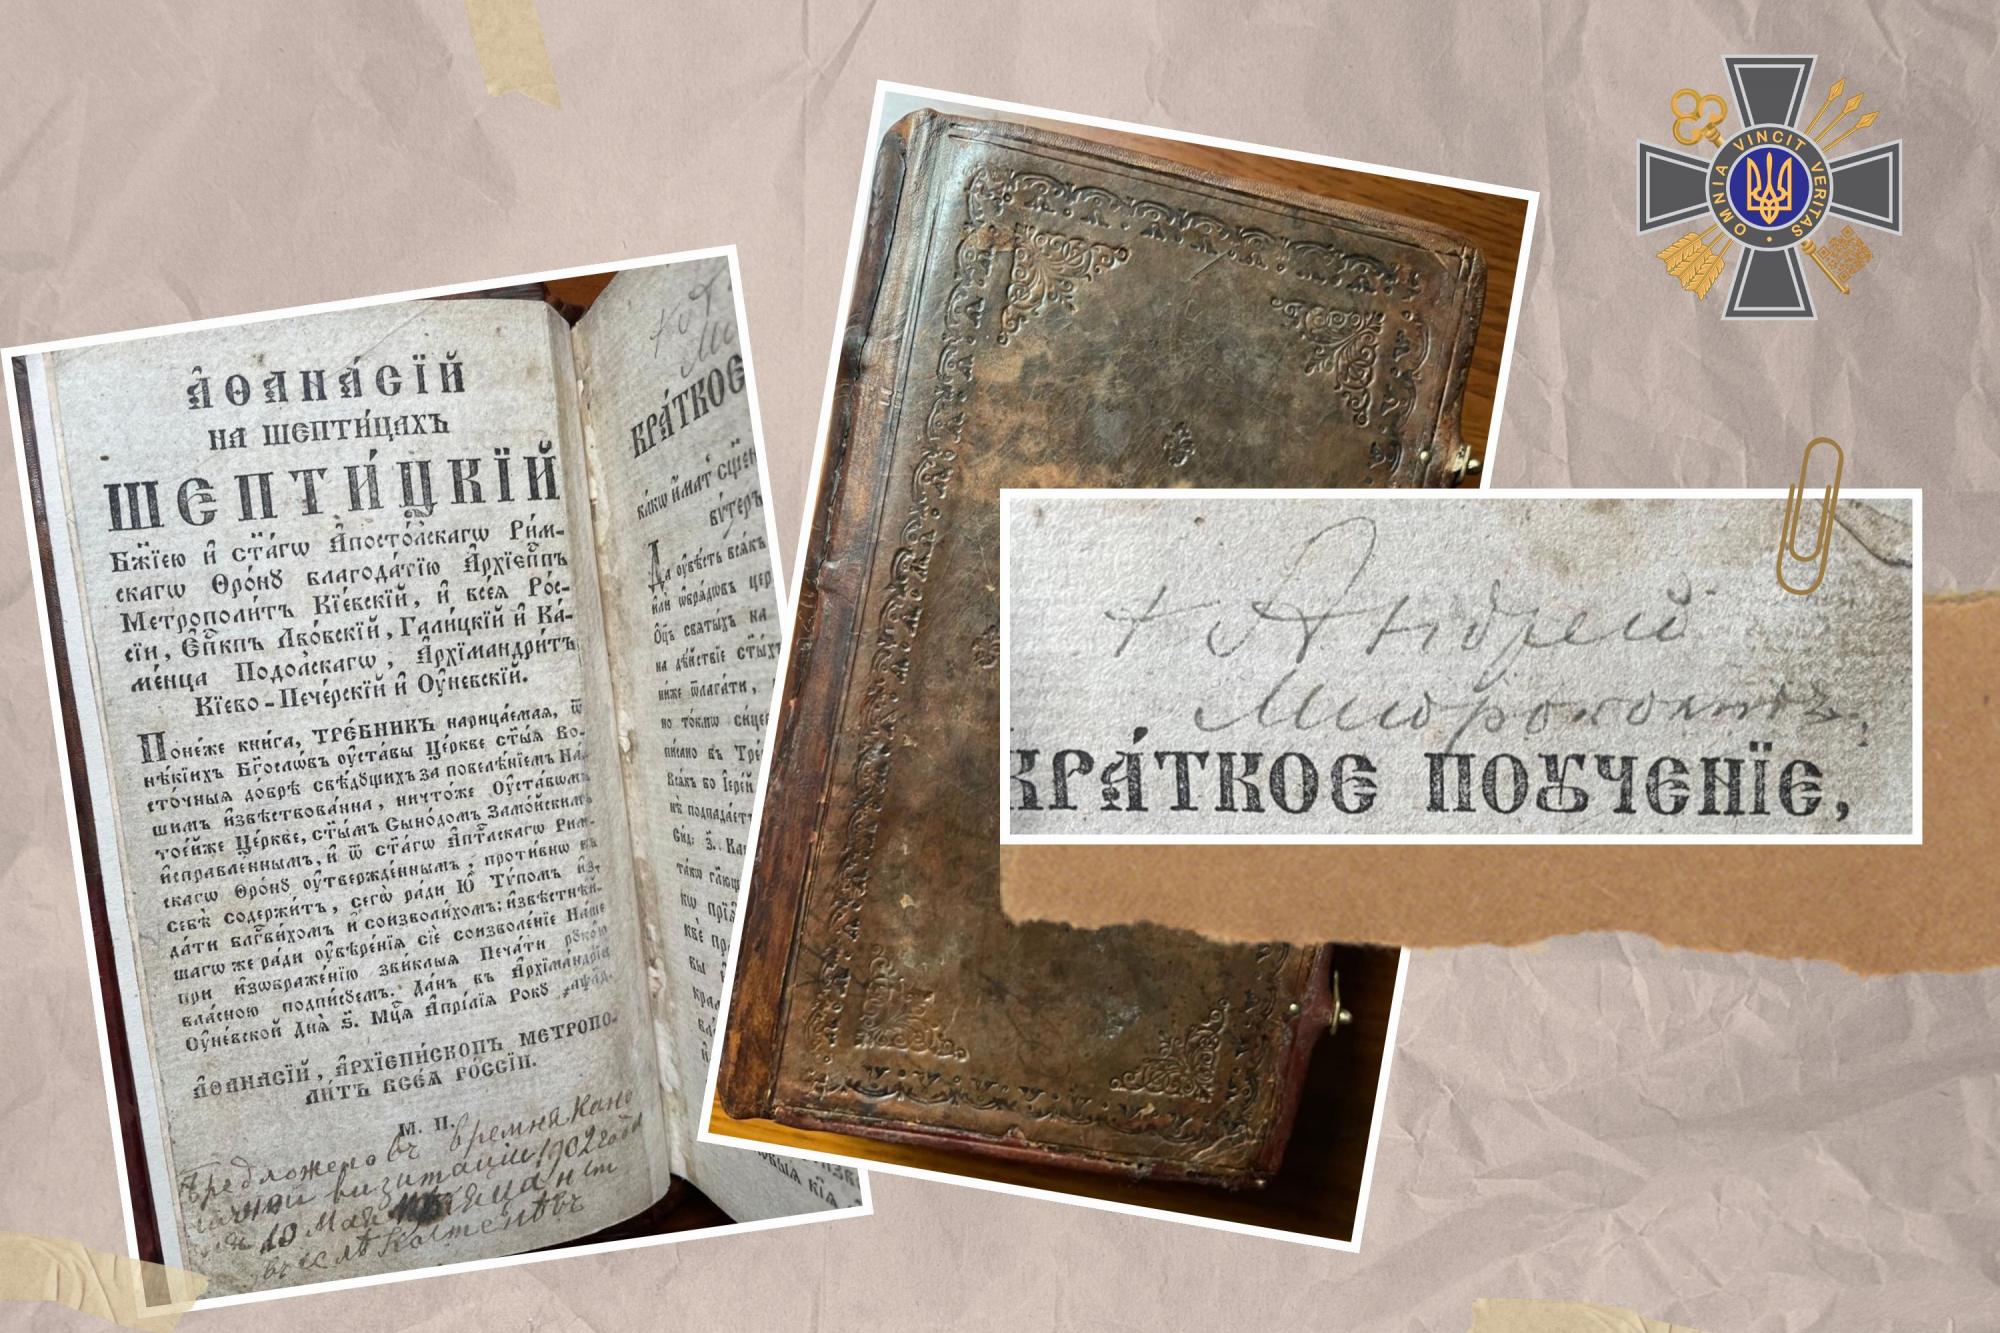 А҆ѲАНА́СЇЙ
НА ШЕПТИ́ЦАХЪ
ШЕПТИ́ЦКЇЙ
Бж҃їею и҆ ст҃а́гѡ А҆посто́лскагѡ Ри́м-
скагѡ Ѳро́нꙋ благода́тїю А҆рхїеп҃пъ
Метрополи́тъ Кїе́вскїй, и҆ всея̀ Рѡс-
сїи, Е҆п҃кпъ Лво́вскїй, Га́лицкїй и҆ Ка́-
менца Подо́лскагѡ, А҆рхїмандри́тъ
Кїево-Пече́рскїй и҆ Оу҆не́вскїй.
Поне́же кни́га, ТРЕ́БНИКЪ нарица́емая, ѿ
нѣ́кїихъ Бг҃осло́въ оу҆ста́вы Це́ркве ст҃ы́я Во-
сто́чныя до́брѣ свѣ́дꙋщихъ за повелѣ́нїемъ На́-
шимъ и҆звѣ́ствованна, ничто́же Оу҆ста́вѡмъ
тоея́же Це́ркве, ст҃ы́мъ Сѵно́домъ Замо́йскимъ
и҆спра́вленнымъ, и҆ ѿ ст҃а́гѡ А҆пⷭ҇тлскагѡ Рим-
скагѡ Ѳро́нꙋ оу҆твержде́ннымъ, проти́внѡ въ
себѣ̀ содержи́тъ, сегѡ̀ ра́ди Ю҆ Тѵ́помъ и҆з-
да́ти блг҃ви́хомъ и҆ соизво́лихомъ; и҆звѣ́стнѣй-
шагѡ же ра́ди оу҆вѣре́нїя сїѐ соизволе́нїе На́ше
при и҆зѡбраже́нїю зви́клыя Печа́ти рꙋко́ю
вла́сною подпи́сꙋемъ. Да́нъ въ А҆рхїмандрі́и
Оу҆не́вской Днѧ̀ ѕ҃. Мц҃а А҆прі́лїя Рокꙋ
А҆ѲАНАСЇЙ, А҆РХЇЕПИ́СКОПЪ МЕТРОПО-
ЛИ́ТЪ ВСЕ́Я РО́ССЇИ.
М. П.
Предложено въ времня Кано
ничной визитаціи 1902 года
10 Мая
въ селѣ
КРА́ТКОЕ
ка́кѡ и҆́мат
Да оу҆вѣ́сть всѧ́къ
и҆лѝ ѡ҆брѧ́дѡвъ цер
Оц҃ъ святы́хъ на
на дѣ́йствїе ст҃ы́хъ
ниже ѿлага́ти,
но то́кмѡ си́це
пи́сано въ Тре
Всѧ́къ во І҆ере́й
не подпада́етъ
+ Андрей
Митрополитъ
КРА́ТКОЕ ПОꙊЧЕНЇЕ,
OMNIA VINCIT VERITAS